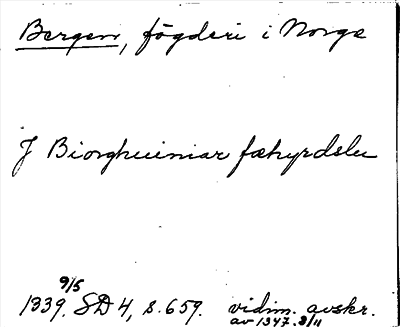 Bergen, fögderi i Norge
J Biorghuiniar fæhyrdslu
9/5
1339. SD 4, s. 659. vidim. avskr.
av 1347. 3/11